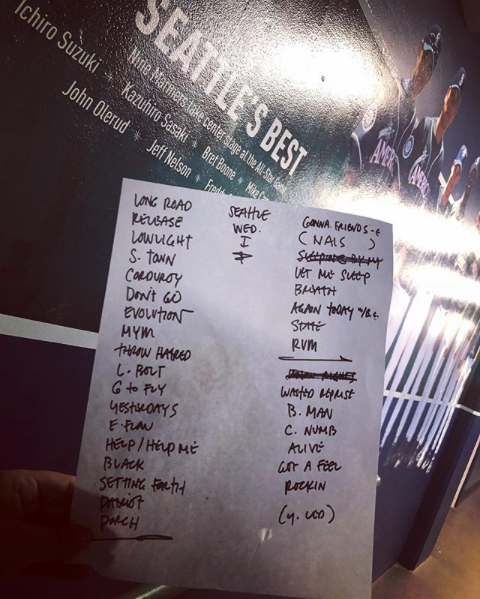 SEATTLE'S BEST
Nine Mariners take center stage at the All-Star Game
Ichiro Suzuki + Kazuhiro Sasaki + Bret Boone + Mike C
John Olerud + Jeff Nelson + Fredd
AMERI
AMERIC
LONG ROAD
RELEASE
LOWLIGHT
S. TOWN
CORDUROY
DON'T GO
EVOLUTION
MYM
THROW HATRED
L. BOLT
G TO FLY
YESTERDAYS
E FLOW
HELP/HELP ME
BLACK
SETTING FORTH
PATRIOT
PORCH
SEATTLE
WED.
I
GONNA FRIENDS - E
(NAIS )
SLEEPING BY MY
LET ME SLEEP
BREATH
AGAIN TODAY
STATE
RVM
WASTED REPRISE
B. MAN
C. NUMB
ALIVE
GOT A FEEL
ROCKIN
(Y. LED)